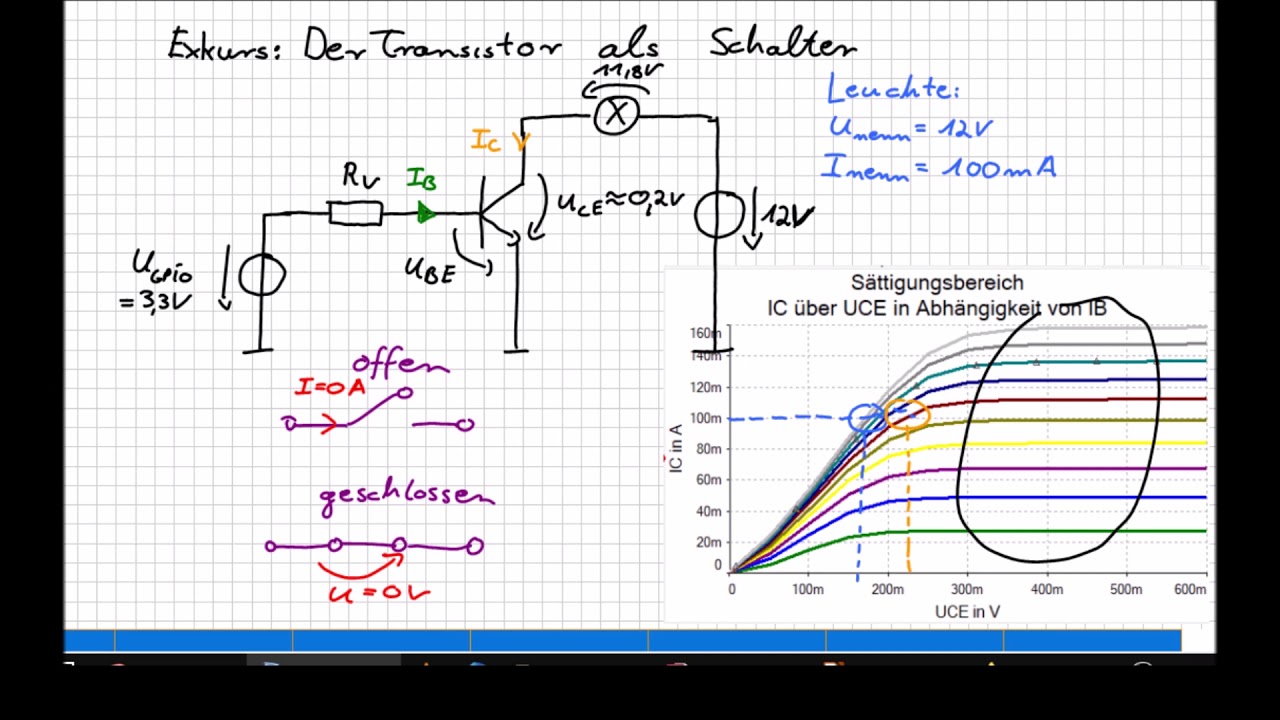 Exkurs: Der Transistor als Schalter
11,8V
Leuchte:
Unenn = 12V
Inenn = 100mA
IC
RV
IB
UCE≈0,2V
12V
UBE
UGPIO
= 3,3V
offen
I=0A
geschlossen
U=0V
Sättigungsbereich
IC über UCE in Abhängigkeit von IB
160m
140m
120m
100m
80m
60m
40m
20m
0
IC in A
0 100m 200m 300m 400m 500m 600m
UCE in V